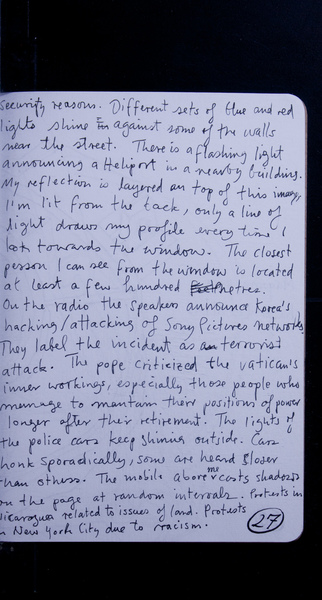 Security reasons. Different sets of blue and red
lights shine in against some of the walls
near the street. There is a flashing light
announcing a Heliport in a nearby building.
My reflection is layered on top of this image,
I'm lit from the back, only a line of
light draws my profile every time I
look towards the window. The closest
person I can see from the window is located
at least a few hundred metres.
On the radio the speakers announce Korea's
hacking/attacking of Sony Pictures networks.
They label the incident as a terrorist
attack. The pope criticized the vatican's
inner workings, especially those people who
mennage to mantain their positions of power
longer after their retirement. The lights of
the police cars keep shining outside. Cars
honk sporadically, some are heard closer
than others. The mobile above me casts shadows
on the page at random intervals. Protests in
Nicaragua related to issues of land. Protests
in New York City due to racism.
27